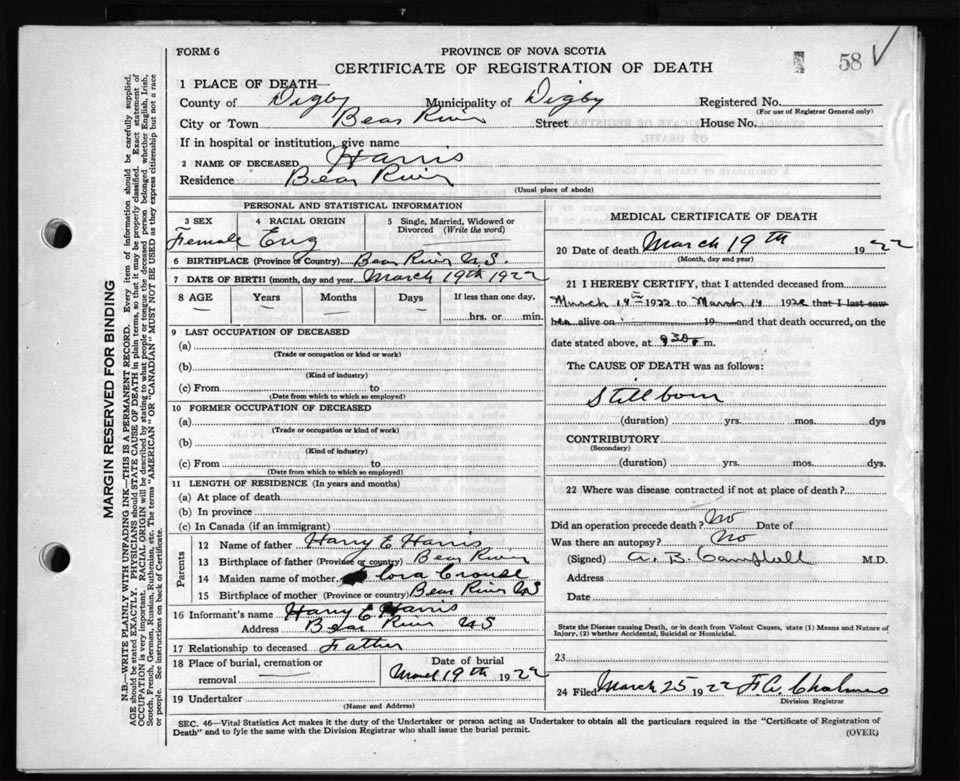 FORM 6
PROVINCE OF NOVA SCOTIA
CERTIFICATE OF REGISTRATION OF DEATH
58 ✓
1 PLACE OF DEATH—
County of Digby Municipality of Digby Registered No.
(For use of Registrar General only)
City or Town Bear River Street House No.
If in hospital or institution, give name
2 NAME OF DECEASED Harris
Residence Bear River
(Usual place of abode)
PERSONAL AND STATISTICAL INFORMATION
3 SEX 4 RACIAL ORIGIN 5 Single, Married, Widowed or Divorced (Write the word)
Female Eng
6 BIRTHPLACE (Province & Country) Bear River N.S.
7 DATE OF BIRTH (month, day and year) March 19th 1922
8 AGE Years Months Days If less than one day,
— — — hrs. or min.
9 LAST OCCUPATION OF DECEASED
(a)
(Trade or occupation or kind or work)
(b)
(Kind of industry)
(c) From to
(Date from which to which so employed)
10 FORMER OCCUPATION OF DECEASED
(a)
(Trade or occupation or kind of work)
(b)
(Kind of industry)
(c) From to
(Date from which to which so employed)
11 LENGTH OF RESIDENCE (In years and months)
(a) At place of death
(b) In province
(c) In Canada (if an immigrant)
Parents
12 Name of father Harry E Harris
13 Birthplace of father (Province or country) Bear River
14 Maiden name of mother Cora Crouse
15 Birthplace of mother (Province or country) Bear River NS
16 Informant's name Harry E Harris
Address Bear River NS
17 Relationship to deceased Father
18 Place of burial, cremation or removal — Date of burial
March 19th 1922
19 Undertaker
(Name and Address)
MEDICAL CERTIFICATE OF DEATH
20 Date of death March 19th 1922
(Month, day and year)
21 I HEREBY CERTIFY, that I attended deceased from
March 19th 1922 to March 19 1922 that I last saw
her alive on 19 and that death occurred, on the
date stated above, at 930 P m.
The CAUSE OF DEATH was as follows:
Stillborn
(duration) yrs. mos. dys
CONTRIBUTORY
(Secondary)
(duration) yrs. mos. dys.
22 Where was disease contracted if not at place of death?
Did an operation precede death? No Date of
Was there an autopsy? No
(Signed) A. B. Campbell M.D.
Address
Date
State the Disease causing Death, or in death from Violent Causes, state (1) Means and Nature of
Injury, (2) whether Accidental, Suicidal or Homicidal.
23
24 Filed March 25 1922
Division Registrar
SEC. 46—Vital Statistics Act makes it the duty of the Undertaker or person acting as Undertaker to obtain all the particulars required in the "Certificate of Registration of
Death" and to fyle the same with the Division Registrar who shall issue the burial permit.
(OVER)
MARGIN RESERVED FOR BINDING
N.B.—WRITE PLAINLY WITH UNFADING INK—THIS IS A PERMANENT RECORD. Every item of information should be carefully supplied.
AGE should be stated EXACTLY. PHYSICIANS should STATE CAUSE OF DEATH in plain terms, so that it may be properly classified. Exact statement of
OCCUPATION is very important. RACIAL ORIGIN will be described by stating to what people or tongue the deceased person belonged whether English, Irish,
Scotch, French, German, Russian, Ruthenian, etc. The terms "AMERICAN" OR "CANADIAN" MUST NOT BE USED as they express citizenship but not a race
or people. See instructions on back of Certificate.